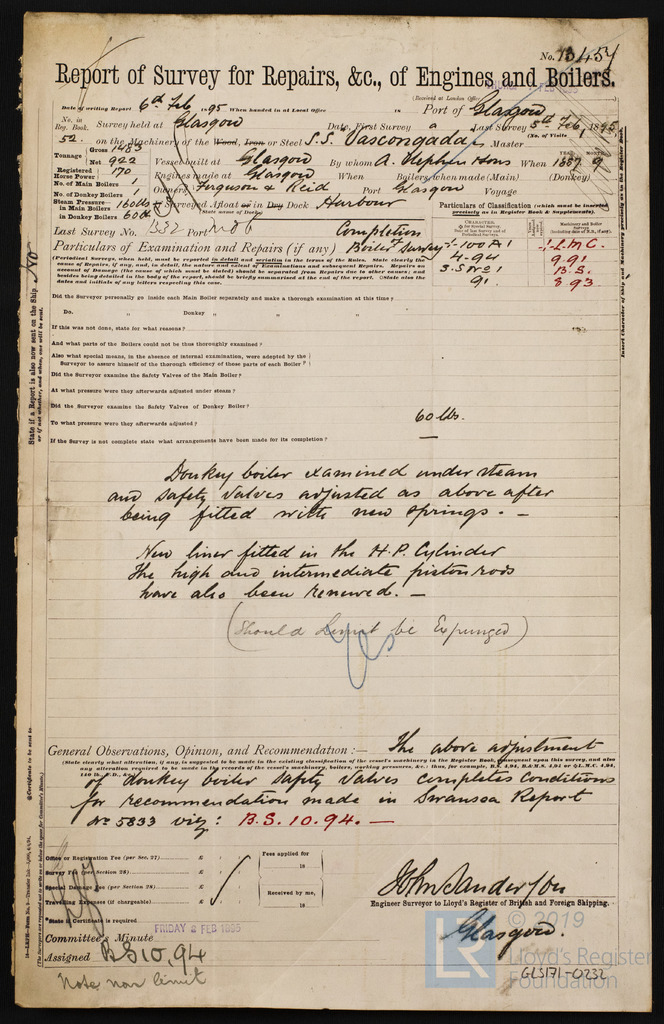 No. 13457
Report of Survey for Repairs, &c., of Engines and Boilers.
(Received at London Office
Date of writing Report 6th Feb 1895 When handed in at Local Office 18 Port of Glasgow
No. in Reg. Book. Survey held at Glasgow Date, First Survey a Last Survey 5th Feb, 1895
(No. of Visits
52. on the Machinery of the Wood, Iron or Steel S.S. Vascongada Master
Tonnage Gross 1485 Net 922 Vessel built at Glasgow By whom A. Stephen & Sons When 1887 9
YEAR. MONTH.
Registered Horse Power 170 Engines made at Glasgow When Boilers, when made (Main) (Donkey)
No. of Main Boilers 1 Owners Ferguson & Reid Port Glasgow Voyage
No. of Donkey Boilers 1
Steam Pressure in Main Boilers 160lbs Surveyed Afloat or in Dry Dock Harbour
(State name of Dock.)
in Donkey Boilers 60 do
Particulars of Classification (which must be inserted precisely as in Register Book & Supplements).
Last Survey No. Port
Completion
Particulars of Examination and Repairs (if any) Boiler Survey
100 A1 L.M.C.
4-94 9.91
3. S. No 1 B.S.
91. 8 93
(Periodical Surveys, when held, must be reported in detail and seriatim in the terms of the Rules. State clearly the
cause of Repairs, if any, and, in detail, the nature and extent of Examinations and subsequent Repairs. Repairs on
account of Damage (the cause of which must be stated) should be separated from Repairs due to other causes; and
besides being detailed in the body of the report, should be briefly summarised at the end of the report. State also the
dates and initials of any letters respecting this case.
Did the Surveyor personally go inside each Main Boiler separately and make a thorough examination at this time?
Do. " Donkey " " "
If this was not done, state for what reasons?
And what parts of the Boilers could not be thus thoroughly examined?
Also what special means, in the absence of internal examination, were adopted by the
Surveyor to assure himself of the thorough efficiency of these parts of each Boiler?
Did the Surveyor examine the Safety Valves of the Main Boiler?
At what pressure were they afterwards adjusted under steam?
Did the Surveyor examine the Safety Valves of Donkey Boiler?
To what pressure were they afterwards adjusted? 60 lbs.
If the Survey is not complete state what arrangements have been made for its completion? —
Donkey boiler examined under steam
and safety valves adjusted as above after
being fitted with new springs. —
New liner fitted in the H.P. Cylinder
The high and intermediate piston rods
have also been renewed. —
(Should Limit be Expunged)
Yes
General Observations, Opinion, and Recommendation:— The above adjustment
(State clearly what alteration, if any, is suggested to be made in the existing classification of the vessel's machinery in the Register Book, consequent upon this survey, and also
any alteration required to be made in the records of the vessel's machinery, boilers, working pressures, &c.
of donkey boiler safety valves completes conditions
for recommendation made in Swansea Report
No 5833 viz: B.S. 10.94. —
Office or Registration Fee (per Sec. 27) £
Survey Fee (per Section 28) £
Special Damage Fee (per Section 28) £
Travelling Expenses (if chargeable) £
Fees applied for
18
Received by me,
18
John Sanderson
Engineer Surveyor to Lloyd's Register of British and Foreign Shipping.
State if Certificate is required
Committee's Minute FRIDAY 8 FEB 1895
Glasgow.
Assigned BS 10,94
Note nor limit
© 2019
LR
Lloyd's Register
Foundation
GLS171-0232
State if a Report is also now sent on the Ship No
or if not whether, and when, one will be sent.
Insert Character of ship and Machinery precisely as in the Register Book.
Certificate to be sent to